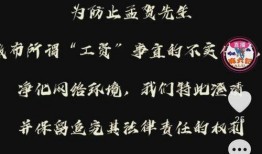 为防止孟贺先生
城市所谓“工资”事宜的不实
净化网络环境，我们特此澄清
并保留追究其法律责任的权利
26